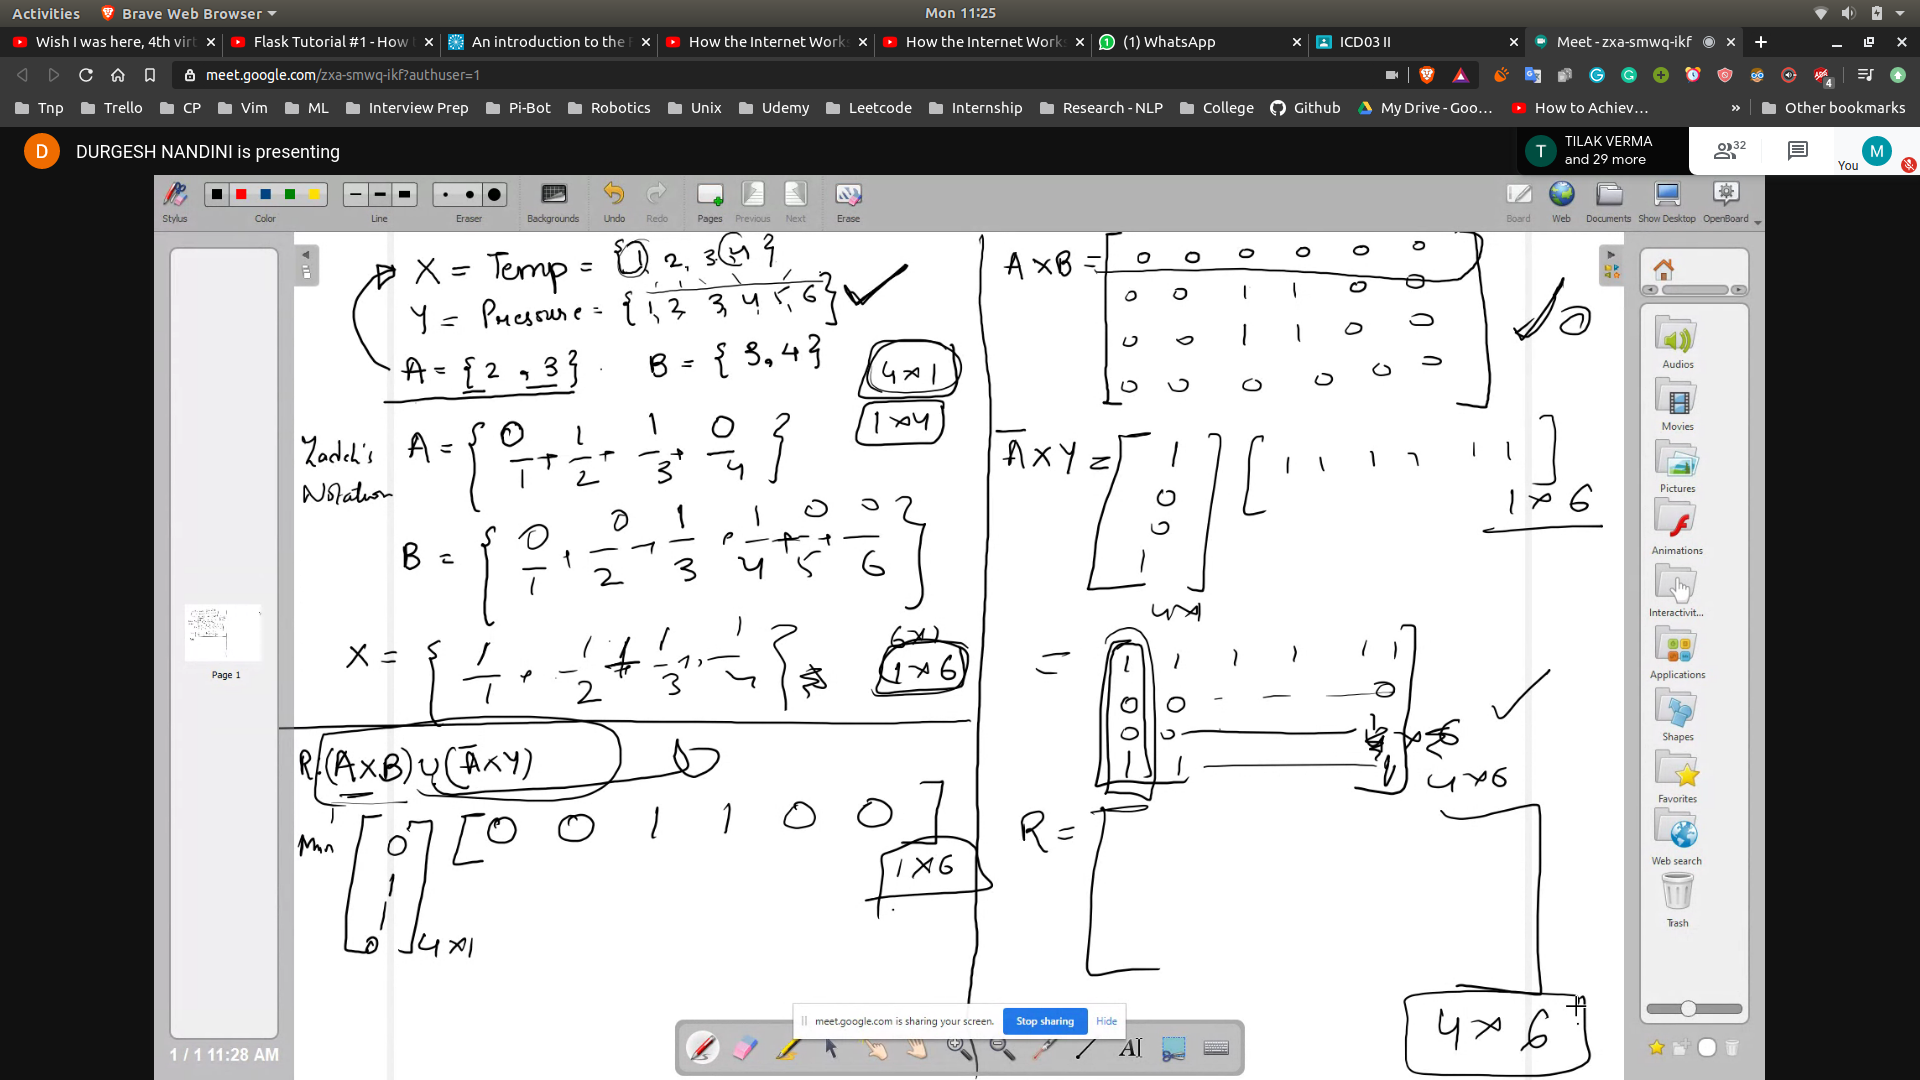 Activities Brave Web Browser Mon 11:25
Wish I was here, 4th vir Flask Tutorial #1 - How An introduction to the How the Internet Work How the Internet Work (1) WhatsApp ICD03 II Meet - zxa-smwq-ikf
meet.google.com/zxa-smwq-ikf?authuser=1
Tnp Trello CP Vim ML Interview Prep Pi-Bot Robotics Unix Udemy Leetcode Internship Research - NLP College Github My Drive - Goo... How to Achiev... » Other bookmarks
D DURGESH NANDINI is presenting
T TILAK VERMA and 29 more
32
You M
Stylus Color Line Eraser Backgrounds Undo Redo Pages Previous Next Erase Board Web Documents Show Desktop OpenBoard
X = Temp = {1, 2, 3, 4}
Y = Pressure = {1, 2, 3, 4, 5, 6}
A = {2, 3} B = {3, 4}
4×1
1×4
Zadeh's Notation
A = {0/1 + 1/2 + 1/3 + 0/4}
B = {0/1 + 0/2 + 1/3 + 1/4 + 0/5 + 0/6}
X = {1/1 + 1/2 + 1/3 + 1/4}
1×6
R: (A×B) ∪ (A̅×Y)
Min
[0 1 1 0] 4×1 [0 0 1 1 0 0]
1×6
A×B =
0 0 0 0 0 0
0 0 1 1 0 0
0 0 1 1 0 0
0 0 0 0 0 0
0
A̅×Y = [1 0 0 1] [1 1 1 1 1 1]
1×6
4×1
=
1 1 1 1 1 1
0 0 - — 0
0 0
1 1
4×6
R =
4×6
Page 1
1 / 1 11:28 AM
Audios
Movies
Pictures
Animations
Interactivit...
Applications
Shapes
Favorites
Web search
Trash
meet.google.com is sharing your screen. Stop sharing Hide